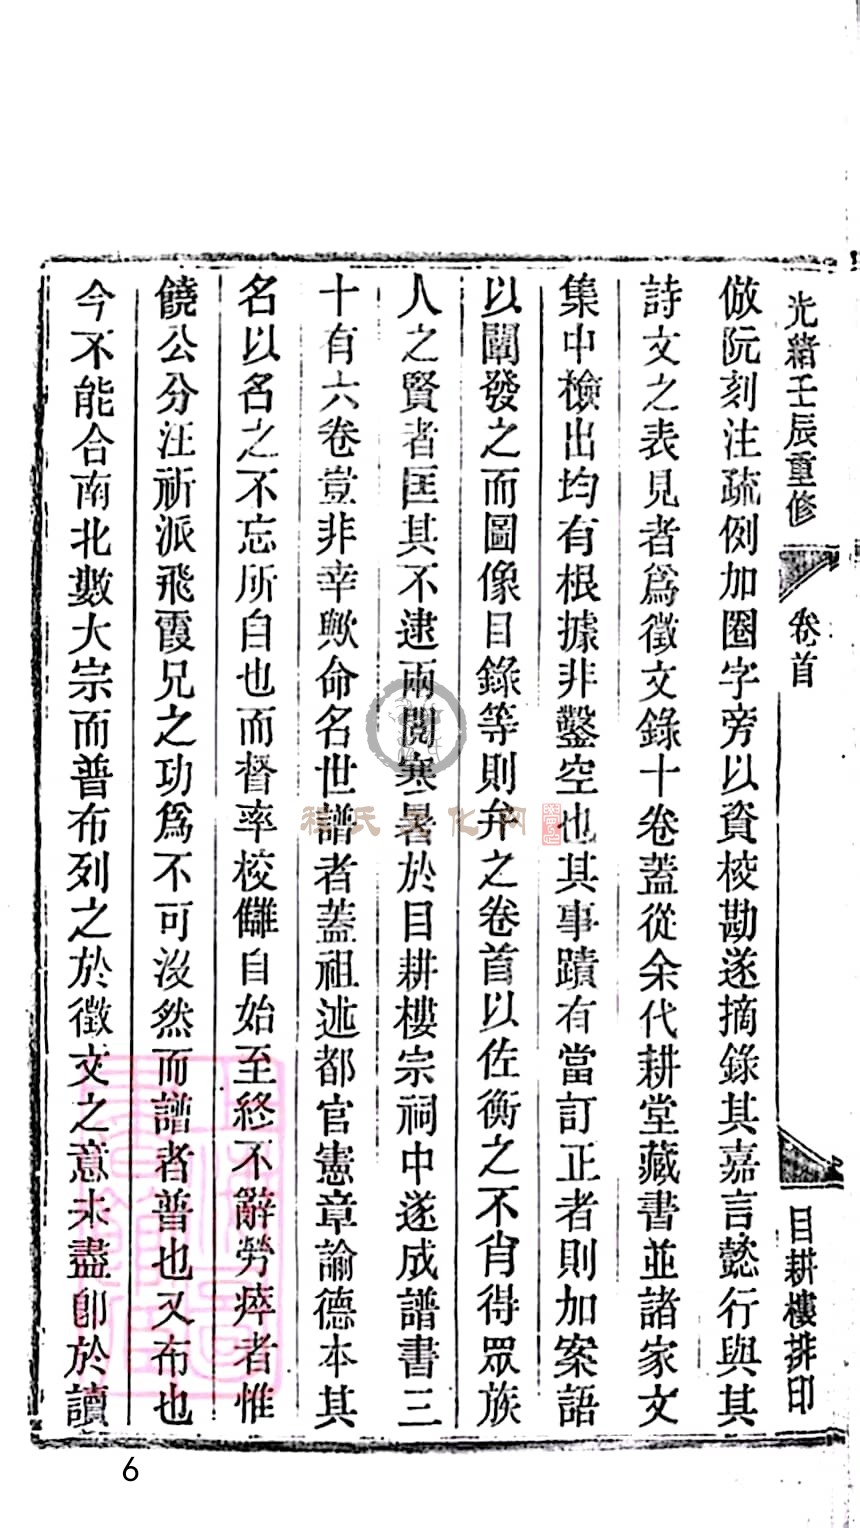 光緒壬辰重修
卷首
目耕樓排印
倣阮刻注疏例加圈字旁以資校勘遂摘錄其嘉言懿行與其
詩文之表見者爲徵文錄十卷蓋從余代耕堂藏書並諸家文
集中檢出均有根據非鑿空也其事蹟有當訂正者則加案語
以闡發之而圖像目錄等則弁之卷首以佐衡之不肖得眾族
人之賢者匡其不逮兩閱寒暑於目耕樓宗祠中遂成譜書三
十有六卷豈非幸歟命名世譜者蓋祖述都官憲章諭德本其
名以名之不忘所自也而督率校讎自始至終不辭勞瘁者惟
饒公分汪祈派飛霞兄之功爲不可沒然而譜者普也又布也
今不能合南北數大宗而普布列之於徵文之意未盡卽於讀
程氏文化网
6